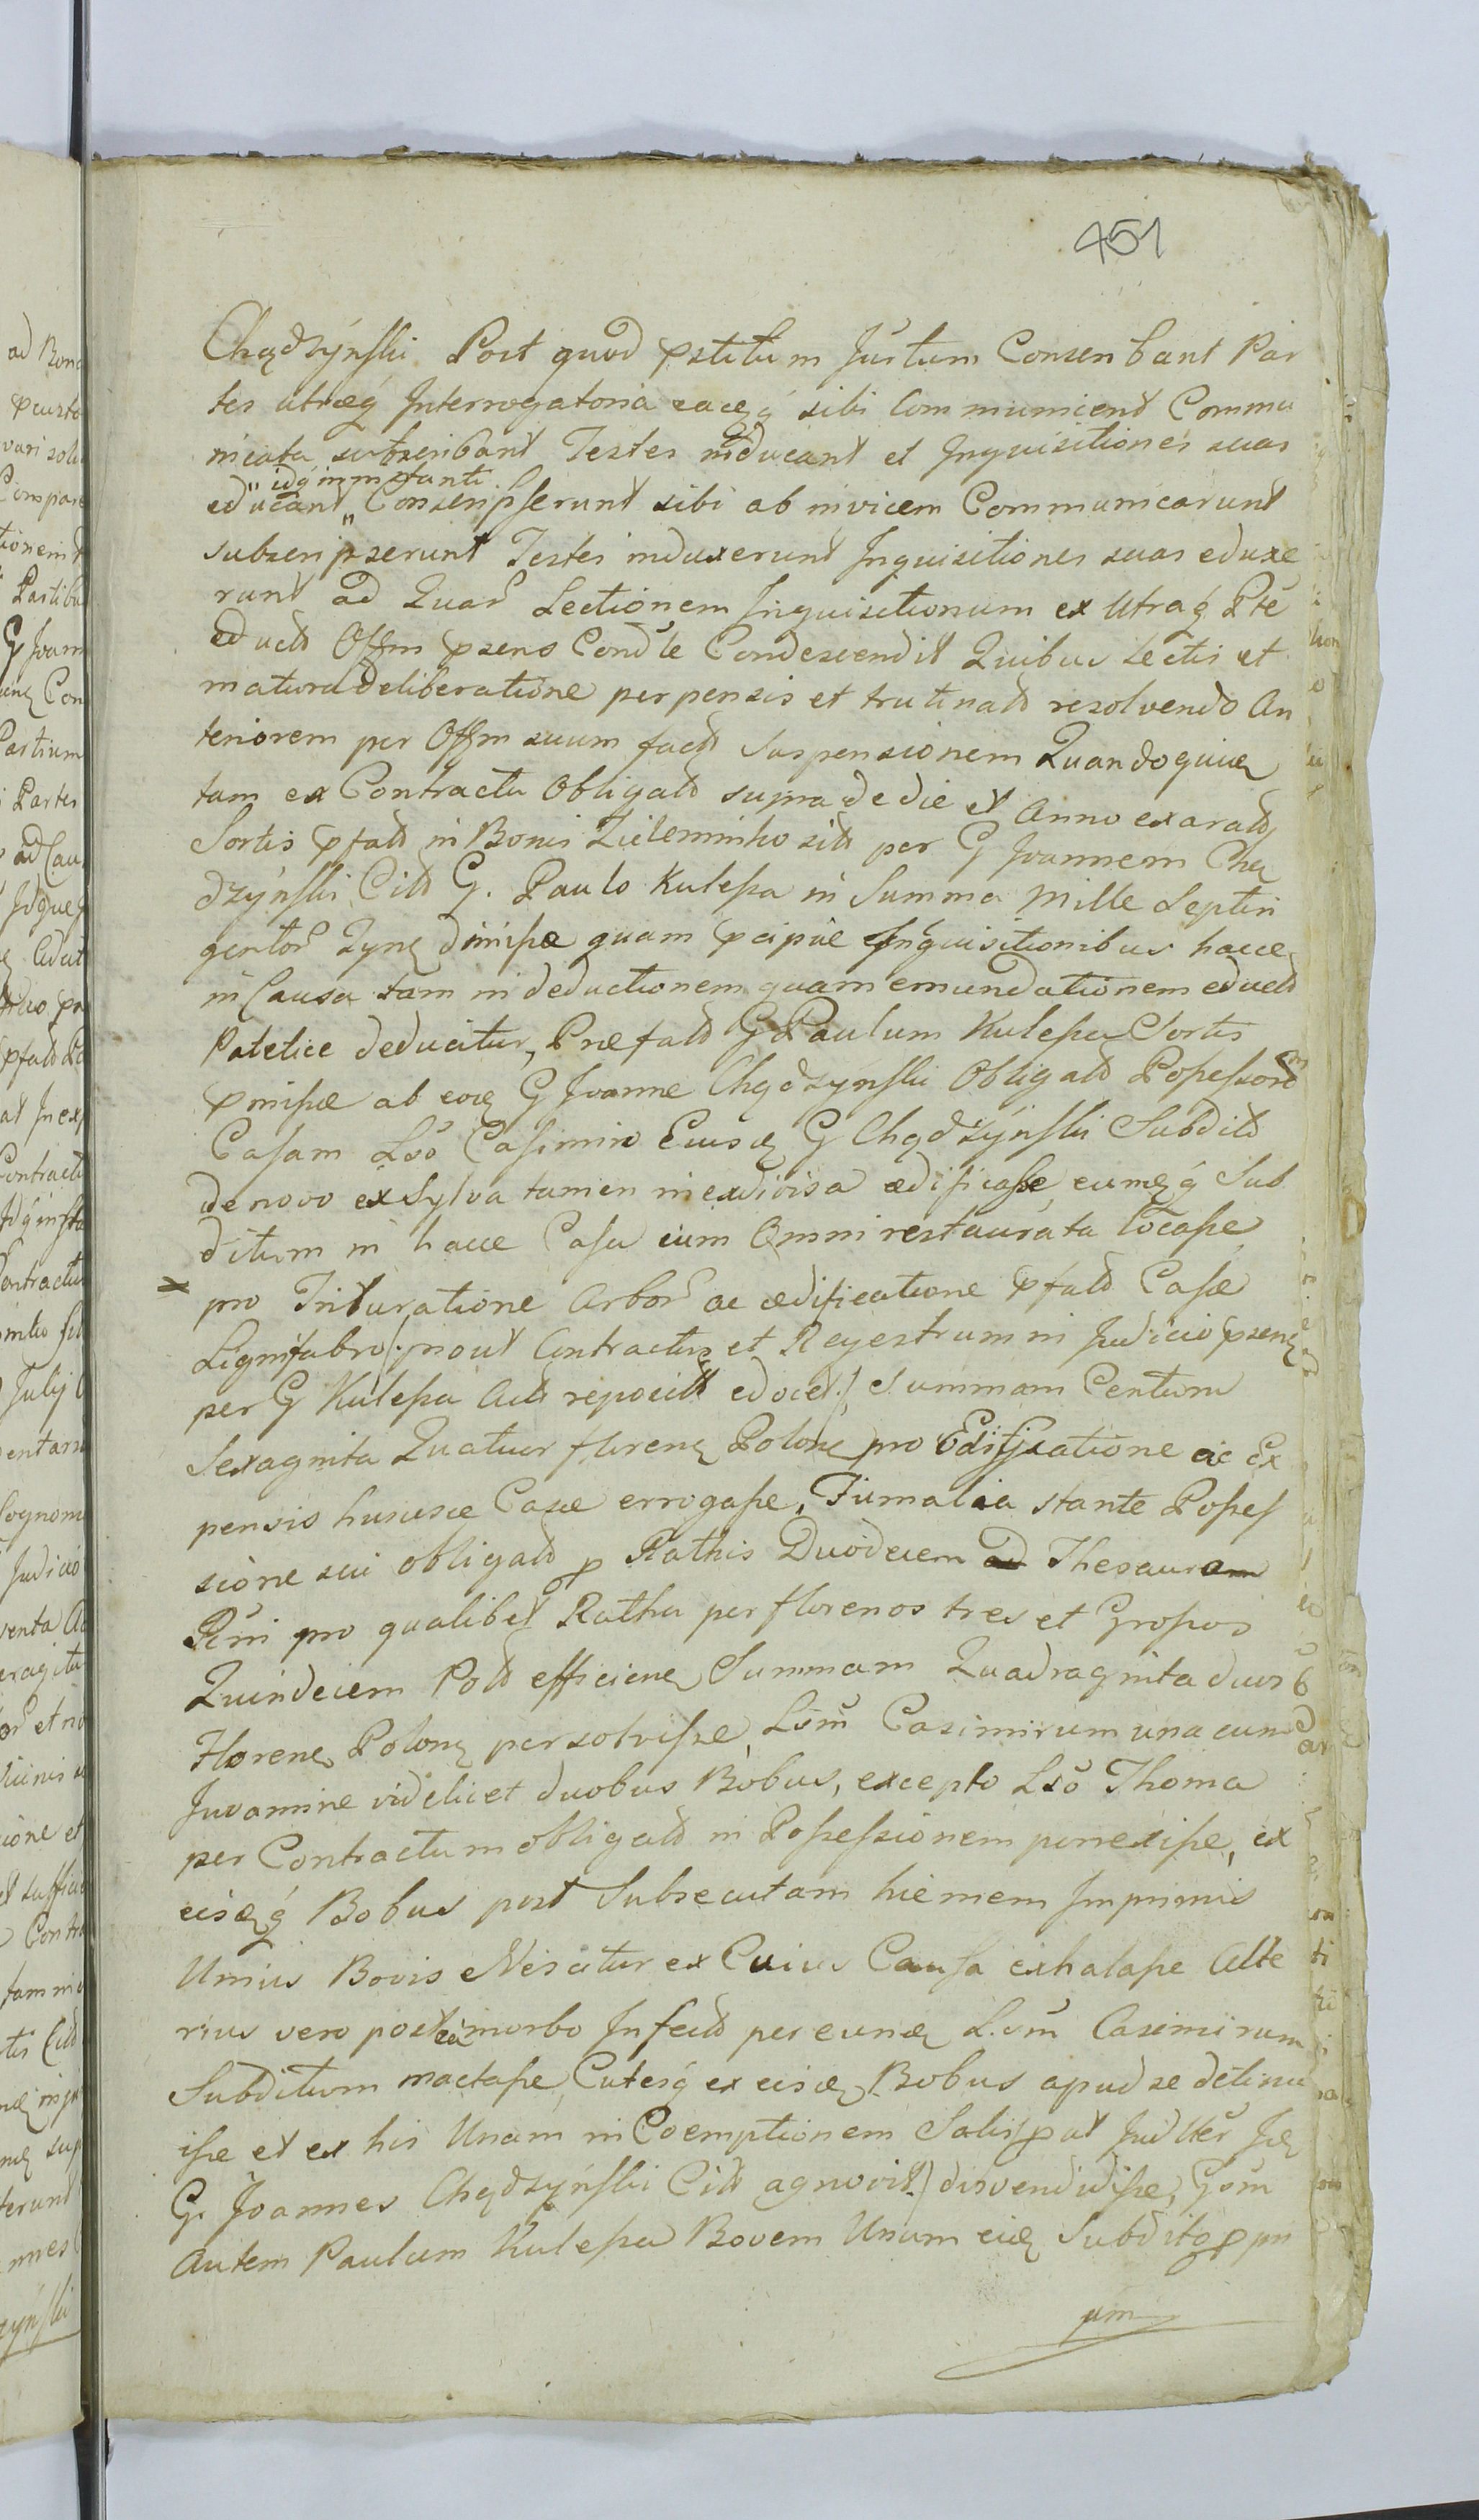 451
Chądzyński Post quod pstitum Justum Conscribant Par
tes utræq Interrogatoria eaqq sibi Communicent Commu
nicata subscribant Testes inducant et Inquisitiones suas
educant „idq in instanti„ Conscripserunt sibi ab invicem Communicarunt
subscripserunt Testes induxerunt Inquisitiones suas eduxe
runt ad Quar Lectionem Inquisitionum ex Utraq Pte
educt Offm pzens Condte Condescendit Quibus Lectis et
matura deliberatione perpensis et trutinatt resolvendo An
teriorem per Offm suum factt Suspensionem Quandoquid
tam ex Contractu Obligatt supra de die et Anno exaratt
Sortis pfatt in Bonis Zieleminko sitt per G Joannem Chą
dzyński Citt G. Paulo Kulesza in Summa Mille Septin
gentor Tyn dimissæ quam pcipue Inquisitionibus hacce
in Causa tam in deductionem quam emundationem eductt
Patetice deducitur, Præfatt G Paulum Kulesza Sortis
pmissæ ab eod G Joanne Chądzyński Obligatt Possessorem
Casam Lso Casimiro Eiusd G Chądzyński Subditt
de novo ex Sylva tamen inexdivisa ædificasse eumqq Sub
ditum in hacce Casa cum Omni restaurata locasse
pro Trituratione Arbor ac ædificatione pfatt Casæ
Lignifabro /:prout Contractus et Regestrum in Judicio pzen
per G Kulesza Actt reposit edocet:/ Summam Centum
Sexaginta Quatuor floren Polon pro Edificatione ac Ex
pensis huiusce Casæ errogasse, Fumalia stante Posses
sione sui obligatt p Rathis Duodecem ad Thesaurum
Rni pro qualibet Ratha per florenos tres et Grossos
Quindecem Poltt efficien Summam Quadraginta duos
Floren Polon persolvisse, Lsm Casimirum una cum
Juvamine videlicet duobus Bobus, excepto Lso Thoma
per Contractum obligatt in Possessionem porrexisse, ex
eisdq Bobus post Subsecutam hiemem Imprimis
Unius Bovis Nescitur ex Cuius Causa exhalasse Alte
rius vero postea morbo Infectt per eund Lsm Casimirum
Subditum mactasse, Cutesq ex eisd Bobus apud se detinu
isse et ex his Unam in Coemptionem Salis /:put Judlter Id
G. Joannes Chądzyński Citt agnovit:/ disvendidisse, Gsm
Autem Paulum Kulesza Bovem Unum eid Subdito p pri
um